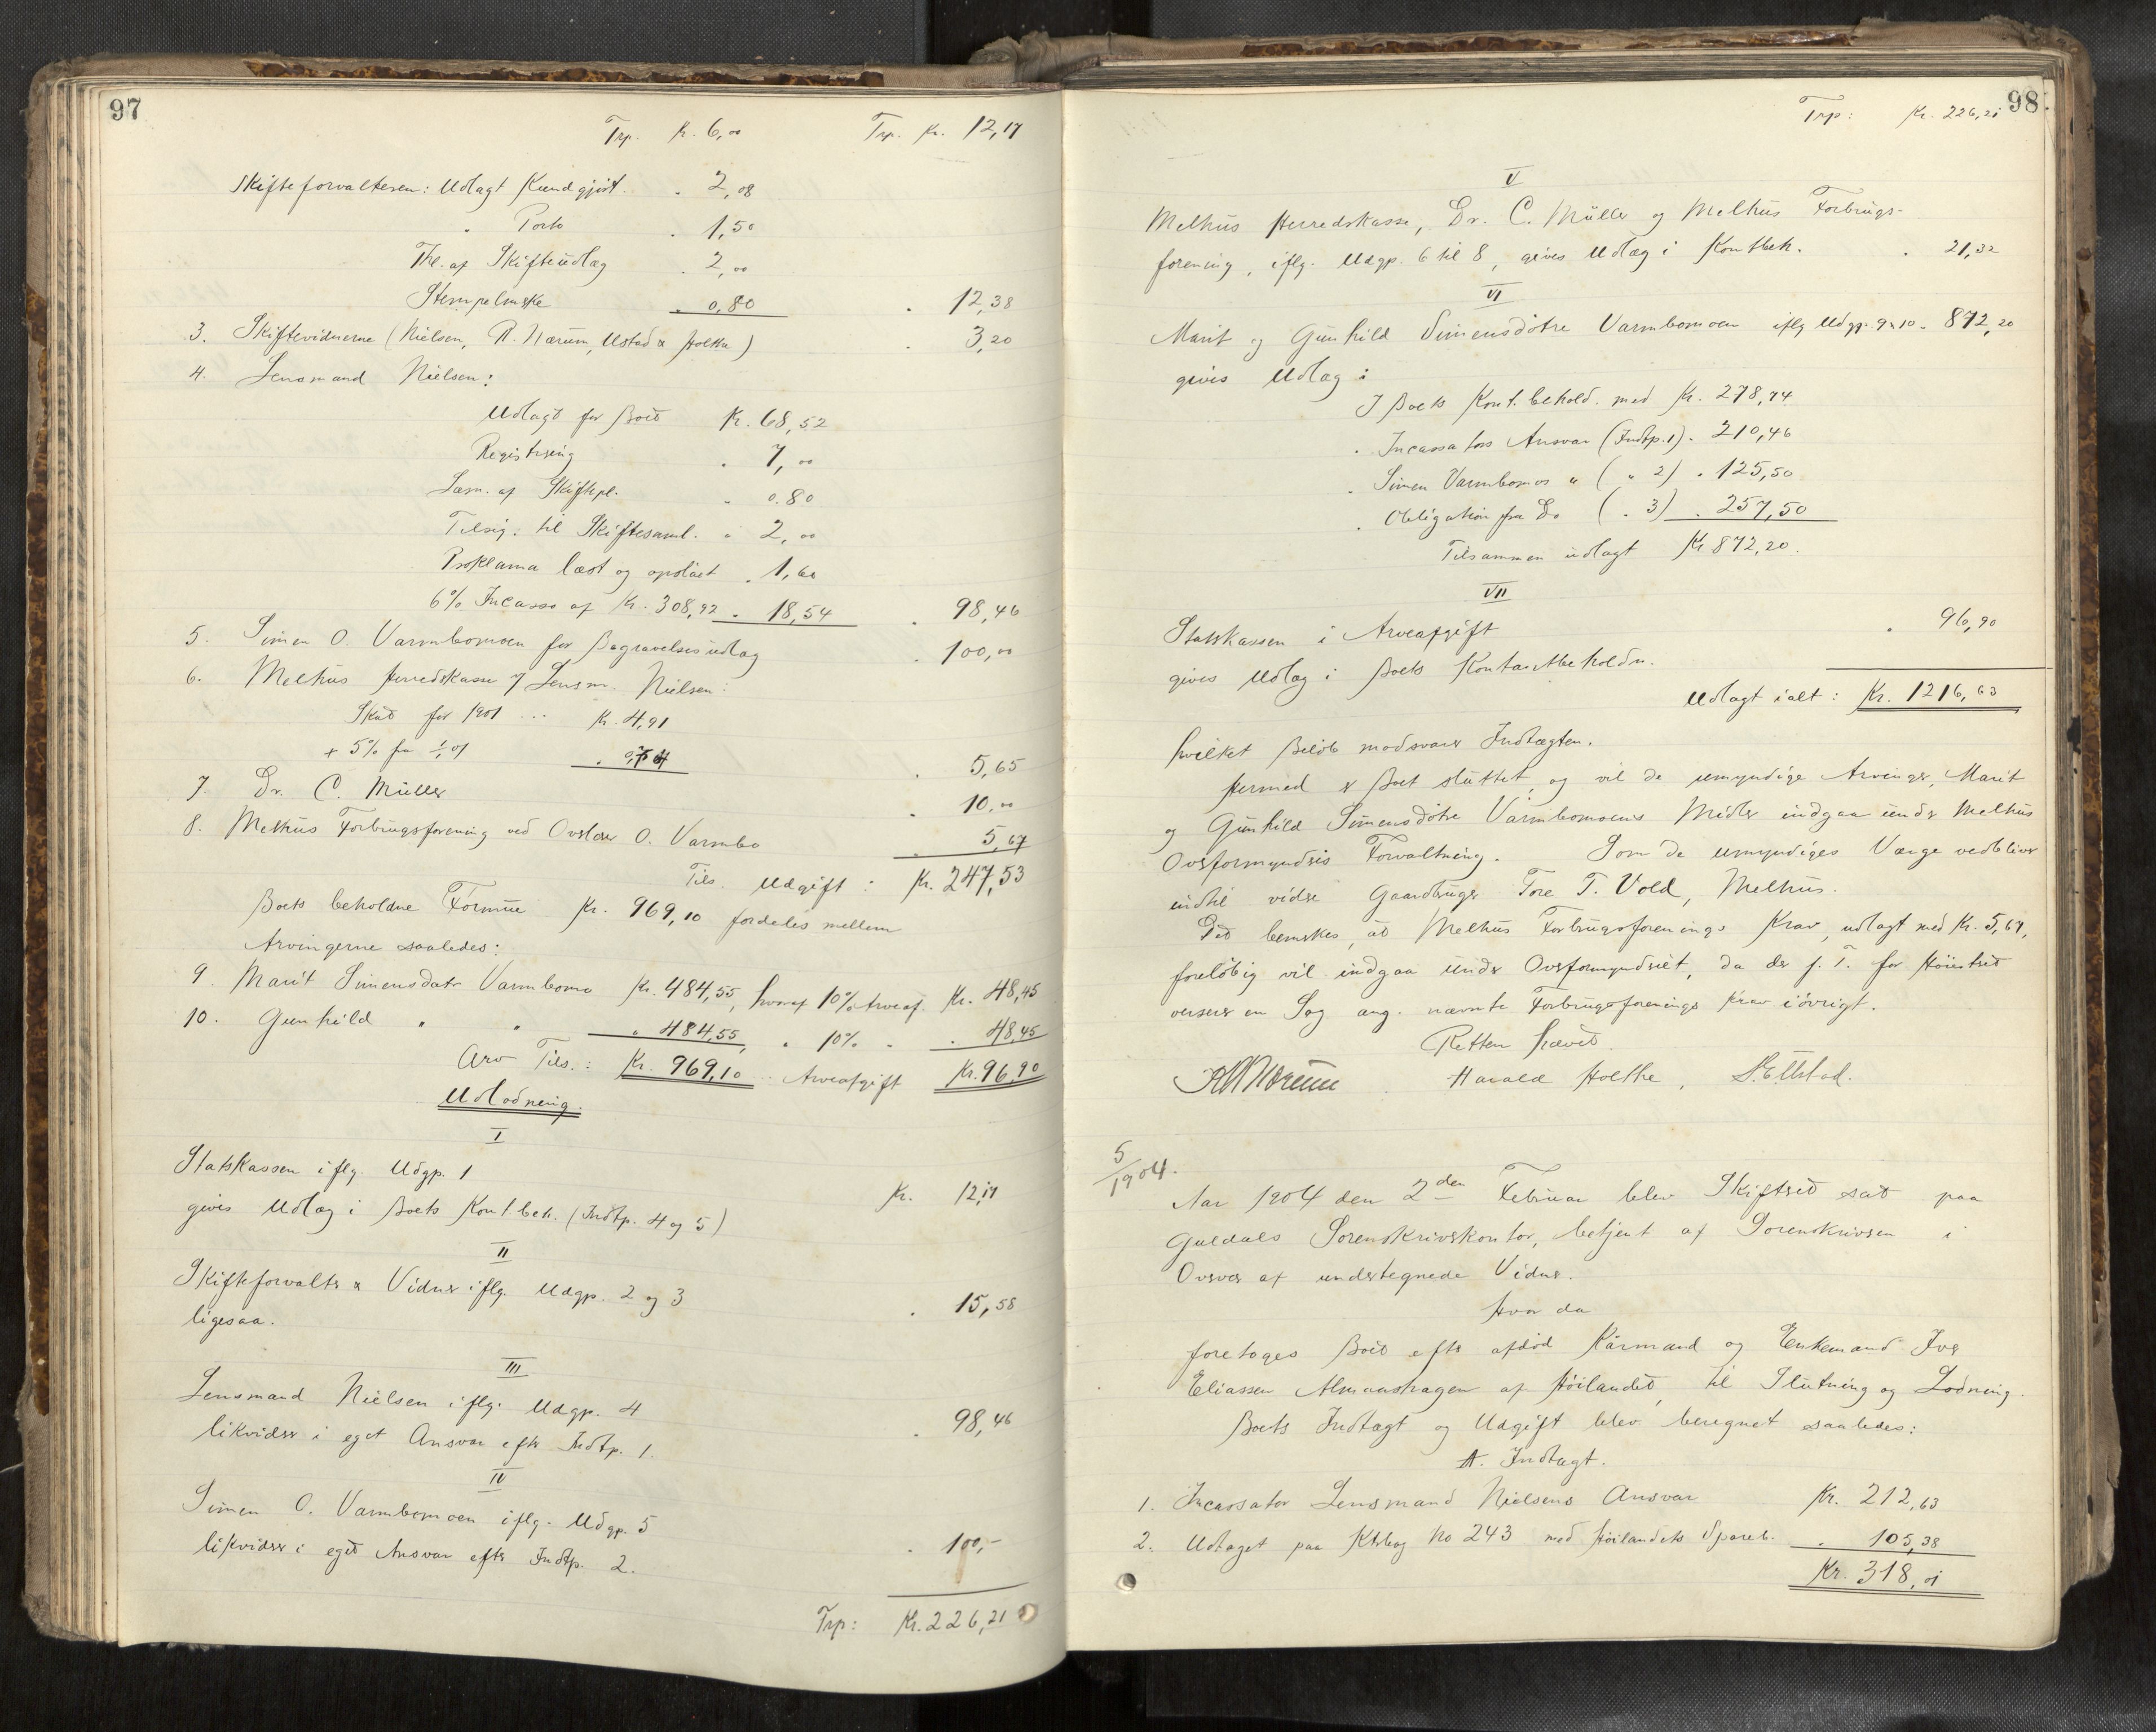 97
Trp. Kr. 6,00 Trp. Kr. 12,17
Skifteforvalteren: Udlagt Kundgjört. " 2,08
" Porto " 1,50
Thl. af Skifteudlæg " 2,00
Stempelmrke " 0,80 " 12,38
3. Skiftevidnerne (Nielsen, R. Nærum, Ustad & Holthe) " 3,20
4. Lensmand Nielsen:
Udlagt for Boet Kr. 68,52
Registrering " 7,00
Læsn. af Skiftepl. " 0.80
Tilsig. til Skiftesaml. " 2,00
Proklama læst og opslaaet " 1,60
6% Incasso af Kr. 308,92 " 18,54 " 98,46
5. Simen O. Varmbomoen for Begravelsesudlæg " 100,00
6. Melhus Herredskasse v/ Lensm. Nielsen:
Skat for 1901 ... Kr. 4,91
+ 5% fra 1/1 01 " 0,74 " 5,65
7. Dr. C. Müller " 10,00
8. Melhus Forbrugsforening ved Ovslær O. Varmbo " 5,67
Tils. Udgift: Kr. 247,53
Boets beholdne Formue Kr. 969,10 fordeles mellem
Arvingerne saaledes:
9. Marit Simensdatr Varmbomo Kr. 484,55, hvoraf 10% Arveaf. Kr. 48,45
10. Gunhild " " " 484,55, " 10% " " 48,45
Arv Tils.: Kr. 969,10 Arveafgift Kr. 96,90
Udlodning.
I
Statskassen iflg. Udgp. 1 Kr. 12,17
gives Udlæg i Boets Kont.beh. (Indtp. 4 og 5)
II
Skifteforvalter & Vidner iflg. Udgp. 2 og 3 " 15,58
ligesaa.
III
Lensmand Nielsen iflg. Udgp. 4 " 98,46
likvider i eget Ansvar efter Indtp. 1.
IV
Simen O. Varmbomoen iflg. Udgp. 5 " 100,-
likvider i eget Ansvar efter Indtp. 2.
Trp: Kr. 226,21
98.
Trp: Kr. 226,21
V
Melhus Herredskasse, Dr. C. Müller og Melhus Forbrugs-
forening, iflg. Udgp. 6 til 8, gives Udlæg i Kontbeh. " 21,32
VI
Marit og Gunhild Simensdötre Varmbomoen iflg Udgp. 9 & 10 " 872,20
gives Udlæg:
I Boets Kont.behold. med Kr. 278,74
" Incassators Ansvar (Indtp. 1) " 210,46
" Simen Varmbomos " ( " 2) " 125,50
" Obligation fra Do ( " 3) " 257,50
Tilsammen udlagt Kr 872,20.
VII
Statskassen i Arveafgift " 96,90
gives Udlæg i Boets Kontantbeholdn.
Udlagt ialt: Kr. 1216,63
hvilket Belöb modsvarer Indtægten.
Hermed er Boet sluttet, og vil de umyndige Arvinger, Marit
og Gunhild Simensdötre Varmbomoens Midler indgaa under Melhus
Overformynderis Forvaltning. Som de umyndiges Værge vedbliver
indtil videre Gaardbruger Tore T. Vold, Melhus.
Det bemerkes, at Melhus Forbrugsforenings Krav, udlagt med Kr. 5,67,
foreløbig vil indgaa under Overformynderiet, da der p. T. for Höiesteret
verserer en Sag ang. nævnte Forbrugsforenings Krav iövrigt.
Retten hævet.
R Nærum Harald Holthe, S. E. Ustad.
5/1904.
Aar 1904 den 2den Februar blev Skifteret sat paa
Guldals Sorenskriverkontor, betjent af Sorenskriveren i
Overvær af undertegnede Vidner.
Hvor da
foretoges Boet efter afdöd Kårmand og Enkemand Iver
Eliassen Almaashagen af Höilandet, til Slutning og Lodning.
Boets Indtægt og Udgift blev beregnet saaledes:
A. Indtægt.
1. Incassator Lensmand Nielsens Ansvar Kr. 212,63
2. Udtaget paa Ktrbog No 243 med Höilandets Spareb. " 105,38
Kr. 318,01